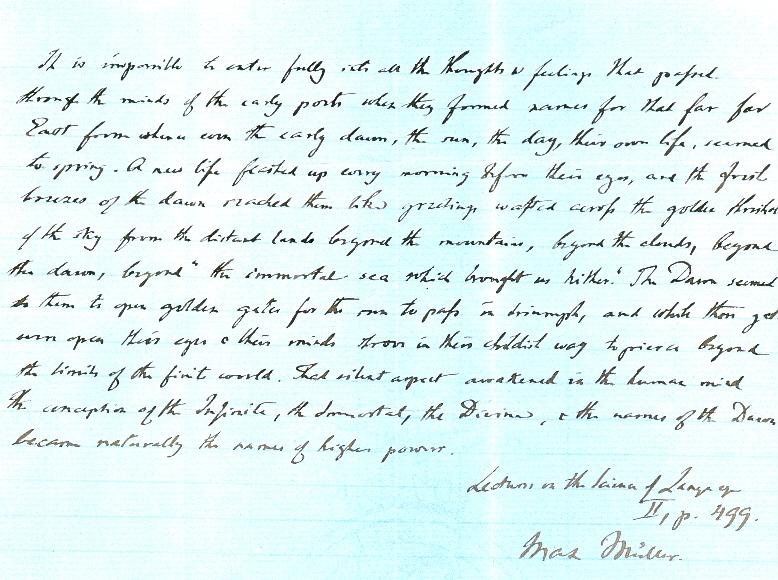 It is impossible to enter fully into all the thoughts & feelings that passed
through the minds of the early poets when they formed names for that far far
East from whence even the early dawn, the sun, the day, their own life, seemed
to spring. A new life flashed up every morning before their eyes, and the fresh
breezes of the dawn reached them like greetings wafted across the golden threshold
of the sky from the distant lands beyond the mountains, beyond the clouds, beyond
the dawn, beyond "the immortal sea which brought us hither." The Dawn seemed
to them to open golden gates for the sun to pass in triumph, and while those gates
were open their eyes & their minds strove in their childish way to pierce beyond
the limits of the finite world. That silent aspect awakened in the human mind
the conception of the Infinite, the Immortal, the Divine, & the names of the Dawn
became naturally the names of higher powers.
Lectures on the Science of Language
II, p. 499.
Max Müller.